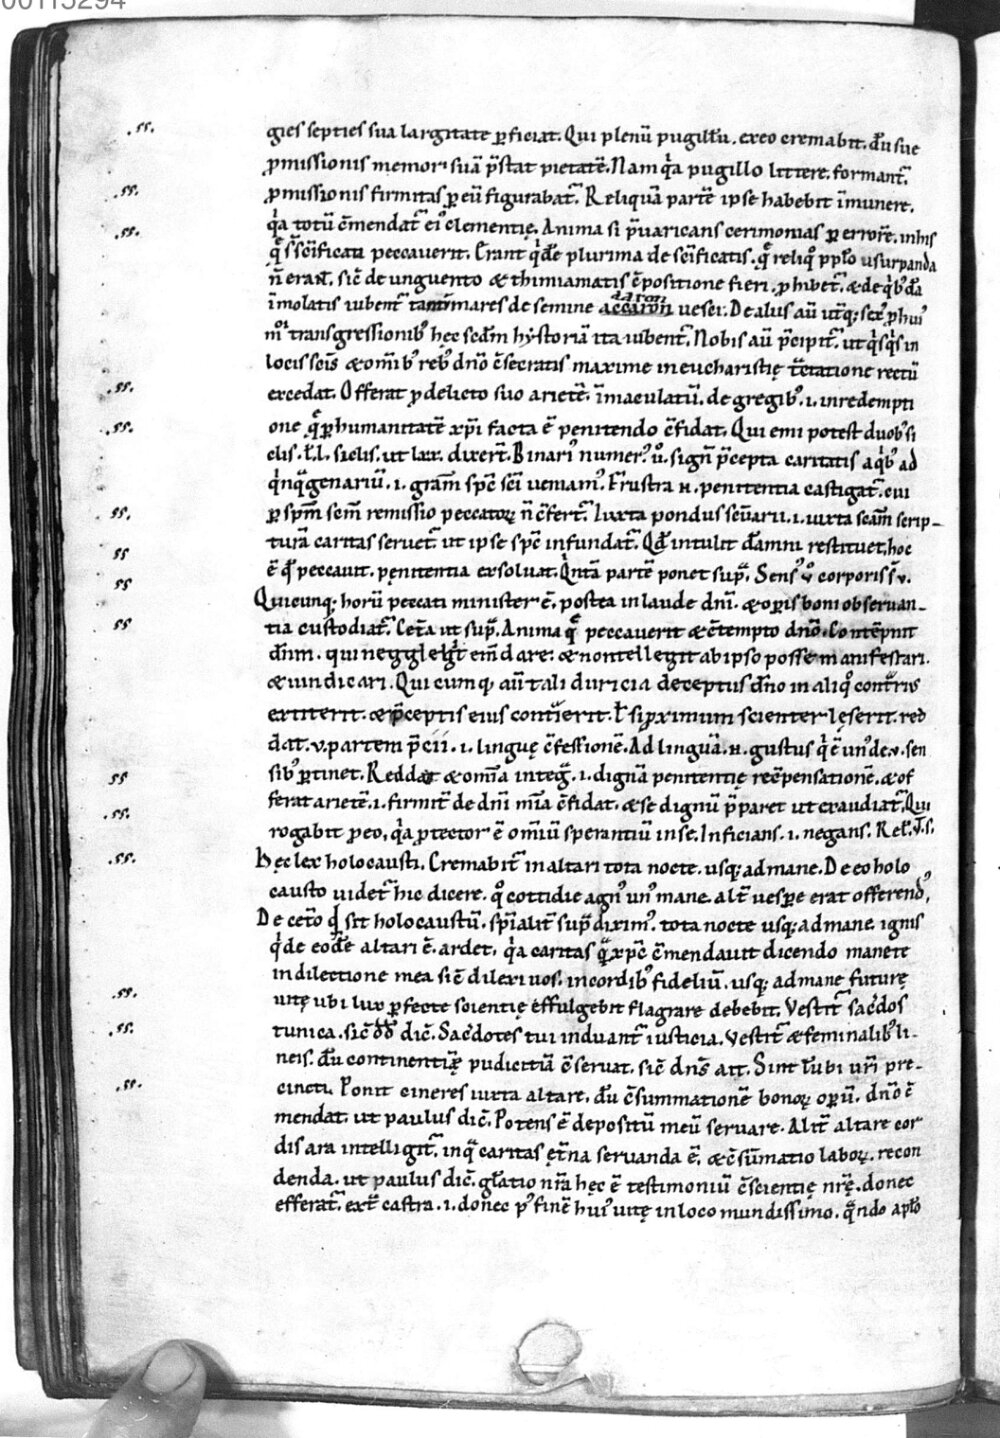 00115294
.ss. gies septies sua largitate ꝑficiat. Qui plenū pugillū. exeo cremabit. dū sue
ꝓmissionis memor suā p̄stat pietatē. Nam qͥa pugillo littere. formant᷑.
.ss. ꝓmissionis firmitas ꝑ eū figurabat᷑. Reliquā partē ipse habebit īmunere.
.ss. qͥa totū c̄mendat᷑ eiꝰ clementię. Anima si p̄uaricans cerimonias ꝑ errorē. inhis
peccauerit. Erant qͥdē plurima de sc̄ificatis. q̄ reliqͦ pplo usurpanda
n̄ erant. sic̄ de unguento & thimiamatis c̄positione fieri. ꝓhibet᷑. & de qͥbꝰdā
daron
īmolatis iubent᷑ tantū mares de semine accaron uesci. De aliis aū utꝛq;
transgressionibꝰ hęc scdm hystoriā ita iubent᷑. Nobis aū p̄cipit᷑. ut qͥsqͥs in
locis scīs & om̄ibꝰ rebꝰ dn̄o c̄secratis maxime in eucharistię rectū
.ss. excedat. Offerat ꝓ delicto suo arietē. īmaculatū. de gregibꝰ. .i. in redempti
.ss. one q̄ ꝑ humanitatē xp̄i facta ē penitendo c̄fidat. Qui emi potest duobꝰ si
clis. ł. l. siclis. ut lxx. dixer̄t. Binariꝰ numerꝰ u̓. sign̄ p̄cepta caritatis aqͥbꝰ ad
qͥnqᷓgenariū. .i. grām sp̄c sc̄i ueniamꝰ. Frustra n. penitentia castigat᷑. cui
.ss. ꝑ sp̄m sc̄m remissio peccatoꝝ n̄ c̄fert᷑. Iuxta pondus sc̄uarii. .i. iuxta scām scrip-
ss turā caritas seruet᷑. ut ipse sp̄c infundat᷑. Qd̄ intulit dāmni restituet. hoc
ss ē qd̄ peccauit. penitentia exsoluat. Qͥntā partē ponet supᷓ. Sensꝰ v̓ corporis s̄ v.
Quicunq; horū peccati minister ē. postea in laude dn̄i. & oꝑis boni obseruan-
ss tia custodiat᷑. Cet̄a ut supᷓ. Anima q̄ peccauerit & c̄tempto dn̄o. Contēpnit
dn̄m. qui negglegit em̄dare. & non tellegit ab ipso posse manifestari.
& uindicari. Qui cumq; aū tali duricia deceptus dn̄o in aliqͦ contᷓrius
extiterit. & p̄ceptis eius contᷓierit. ł si ꝓximum scienter lęserit. red
dat. v. partem p̄cii. .i. linguę c̄fessionē. Ad linguā. n. gustus qͥ ē unꝰ de .v. sen
ss sibꝰ ꝑtinet. Reddat & om̄ia integᷓ. .i. dignā penitentię rec̄pensationē. & of
.ss. ferat arietē. .i. firmit᷑ de dn̄i mīa c̄fidat. & se dignū p̄paret ut exaudiat᷑. Qui
rogabit ꝓ eo, qͥa ꝓtector ē om̄iū sperantiū in se. Inficians. .i. negans.
.ss. Hęc lex holocausti. Cremabit᷑ in altari tota nocte. usq; ad mane. De eo holo
causto uidet᷑ hic dicere. qͦ cottidie agnꝰ unꝰ mane. alt᷑ uespe erat offerendꝰ,
De cet̄o qd̄ sit holocaustū. sp̄ialit᷑ supᷓ diximꝰ. tota nocte usq; ad mane. ignis
qͥde eodē altari ē. ardet. qͥa caritas quā xp̄c c̄mendauit dicendo manete
in dilectione mea sic̄ dilexi uos. in cordibꝰ fideliū. usq; ad mane futurę
.ss. uitę ubi lux ꝑfecte scientię effulgebit flagrare debebit. Vestit᷑ sac̄dos
.ss. tunica. sic̄ dd̄ dic̄. Sac̄dotes tui induant᷑ iusticia. Vestit᷑ & feminalibꝰ li-
neis. dū continentię pudicitiā c̄seruat. sic̄ dn̄s ait. Sint lūbi ur̄i pre-
.ss. cincti. Ponit cineres iuxta altare. dū c̄summationē bonoꝝ oꝑū. dn̄o c̄
mendat. ut paulus dic̄. Potens ē depositū meū seruare. Alit᷑ altare cor
dis ara intelligit᷑. in qᷓ caritas et̄na seruanda ē. & c̄sūmatio laboꝝ. recon
denda. ut paulus dic̄. gl̄atio nr̄a hęc ē testimoniū c̄scientię nr̄ę. donec
efferat᷑. ext̄ castra. .i. donec pꝰ finē huiꝰ uitę in loco mundissimo. qᷓndo apl̄o